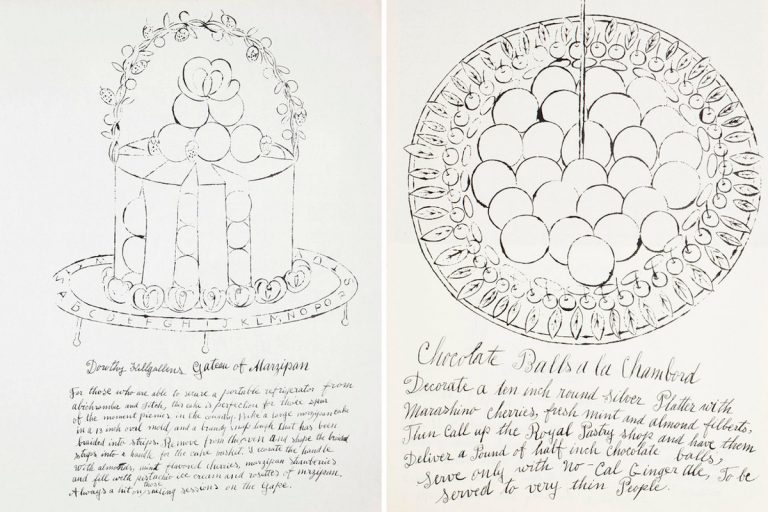 A B C D E F G H I J K L M N O P Q R S T
Dorothy Killgallens Gateau of Marzipan
For those who are able to secure a portable refrigerator from
abichrombie and Fitch, this cake is perfection for those
of the moment picnics in the country. Make a large marzipan cake
in a 13 inch oval mold and a brandy snap bough that has been
braided into strips. Remove from the oven and shape the braided
strips into a handle for the cake basket. Decorate the handle
with almonds, mint flavored cherries, marzipan strawberries
and fill with pistachio ice cream and rosattes of mrzipan.
Always a hit on those sailing sessions on the Cape.
Chocolate Balls a la Chambord
Decorate a ten inch round silver Platter with
Marashino cherries, fresh mint and almond filberts,
Then call up the Royal Pastry shop and have them
Deliver a Pound of half inch chocolate balls,
Serve only with No-Cal Ginger Ale, To be
Served to very thin People.